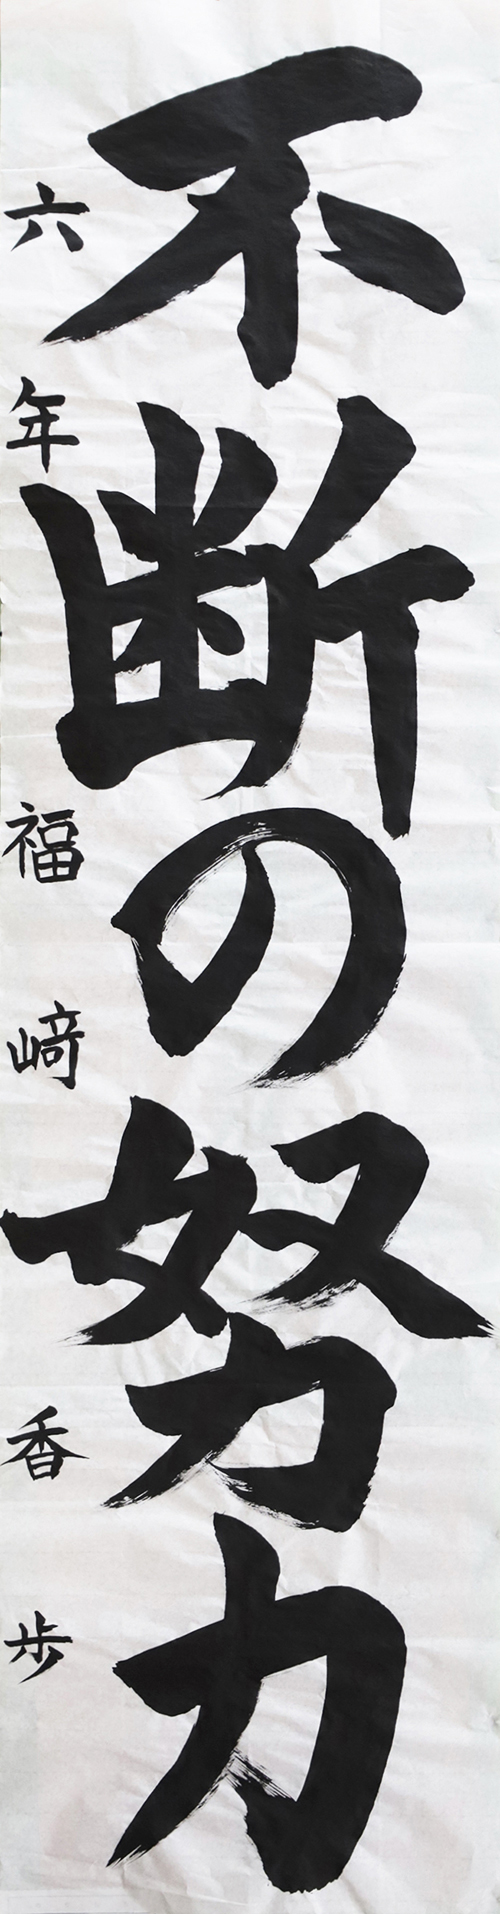 不断の努力
六年福﨑香歩